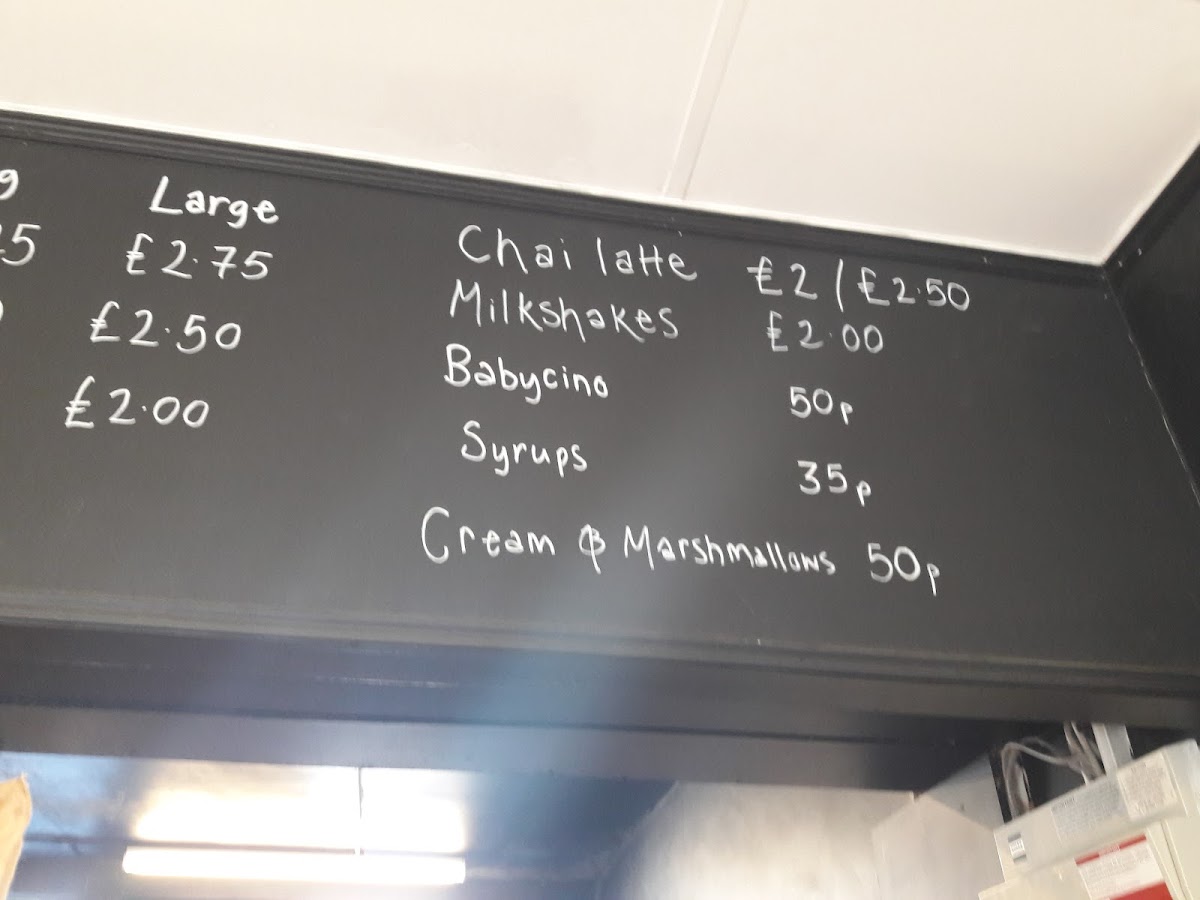 Large
£2.75
£2.50
£2.00
Chai latte £2 / £2.50
Milkshakes £2.00
Babycino 50p
Syrups 35p
Cream & Marshmallows 50p